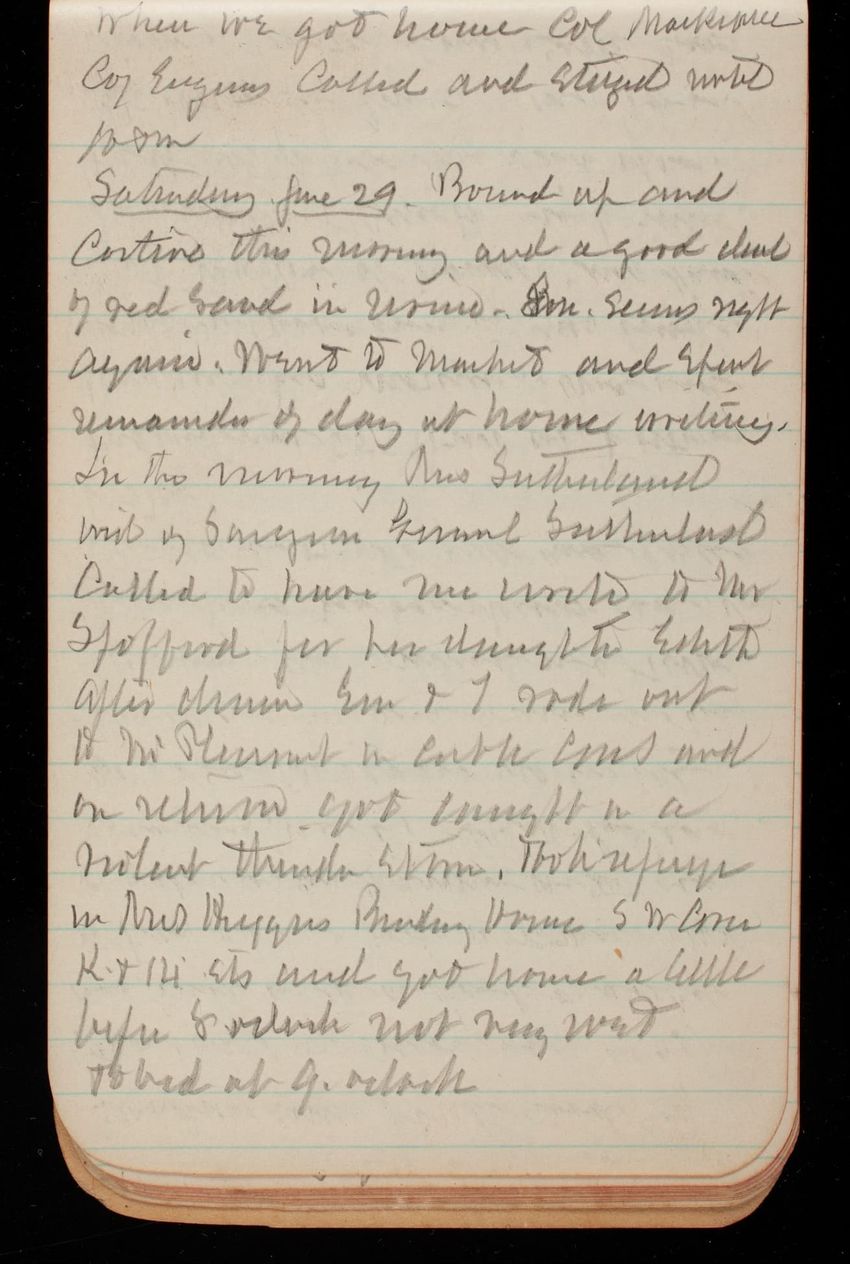 When we got home Col
Coy Engineers Called and stayed until
10 P.m
Saturday June 29. Bound up and
Costive this morning and a good deal
of red Sand in Urine. Em. Seems right
again. Went to Market and Spent
remainder of day at home writing.
In the morning Mrs Sutherland
wid of Surgeon General Sutherland
Called to have me write to Mr
Spofford for her daughter Edith
After dinner Em & I rode out
to Mt Pleasant in Cable Cars and
on return got caught in a
violent thunder Storm. Took refuge
in Mrs Huggins Boarding House S W Corner
K & 14 sts and got home a little
before 8 oclock not very wet
To bed at 9. oclock